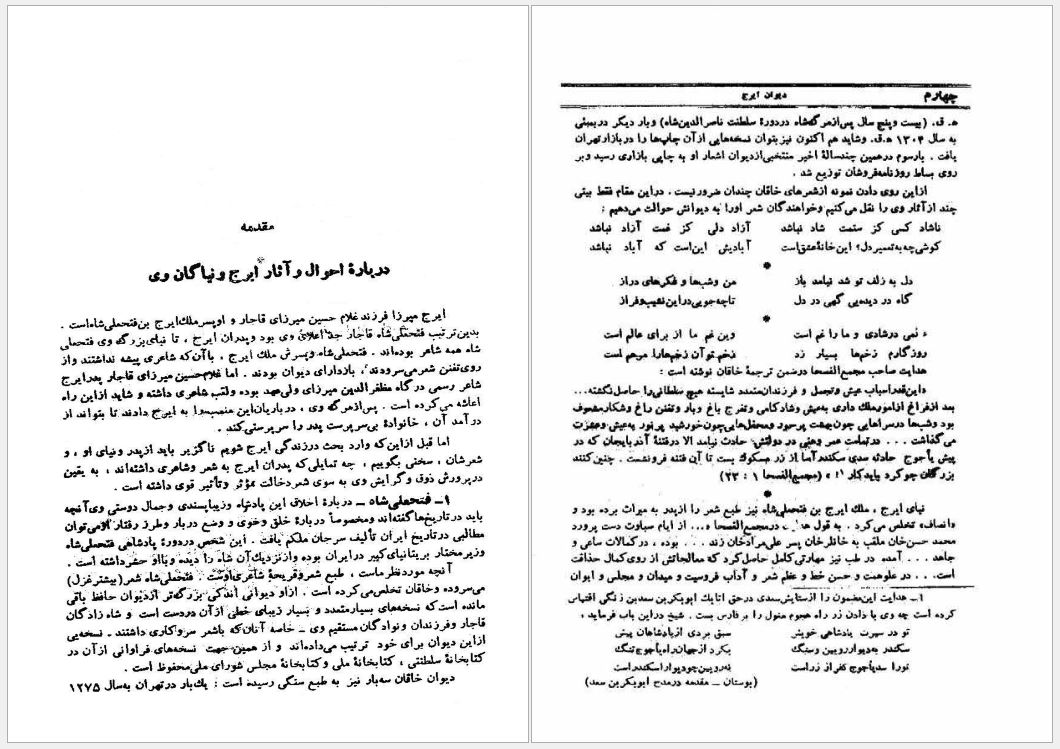 مقدمه
دربارهٔ احوال و آثار ایرج و نیاگان وی
ایرج میرزا فرزند غلام حسین میرزای قاجار و او پسر ملك‌ایرج بن‌فتحعلی‌شاه‌است .
بدین‌ترتیب فتحعلی‌شاه قاجار جد اعلای وی بود و پدران ایرج ، تا نیای‌بزرگ وی فتحعلی
شاه همه شاعر بوده‌اند . فتحعلی‌شاه و پسرش ملك ایرج ، باآن‌که شاعری پیشه نداشتند و از
روی‌تفنن شعر می‌سرودند، باز دارای دیوان بودند . اما غلام‌حسین میرزای قاجار پدر ایرج
شاعر رسمی درگاه مظفرالدین میرزای ولی‌عهد بوده و لقب شاعری داشته و شاید از این راه
اعاشه می‌کرده است . پس‌ازمرگ وی ، درباریان‌این منصب‌را به ایرج دادند تا بتواند از
درآمد آن ، خانوادهٔ بی‌سرپرست پدر را سرپرستی‌کند .
اما قبل ازاین‌که وارد بحث درزندگی ایرج شویم ناگزیر باید ازپدر ونیای او ، و
شعرشان ، سخنی بگوییم ، چه تمایلی‌که پدران ایرج به شعر وشاعری داشته‌اند ، به یقین
درپرورش ذوق و گرایش وی به سوی شعر دخالت مؤثر وتأثیر قوی داشته است .
۱ــ فتحعلی‌شاه ــ دربارهٔ اخلاق این پادشاه وزیباپسندی وجمال دوستی وی‌آنچه
باید درتاریخ‌ها گفته‌اند ومخصوصاً دربارهٔ خلق وخوی و وضع دربار وطرز رفتار اومی‌توان
مطالبی درتاریخ ایران تألیف سرجان ملکم یافت . این شخص دردورهٔ پادشاهی فتحعلی‌شاه
وزیرمختار بریتانیای‌کبیر درایران بوده وازنزدیك‌آن شاه را دیده وبااو حضرداشته است .
آنچه موردنظرماست ، طبع شعروقریحهٔ شاعری‌اوست . فتحعلی‌شاه شعر(بیشترغزل)
می‌سروده وخاقان تخلص‌می‌کرده است . ازاو دیوانی اندکی بزرگ‌تر ازدیوان حافظ باقی
مانده است‌که نسخه‌های بسیارمتعدد و بسیار زیبای خطی ازآن دردست است و شاه زادگان
قاجار وفرزندان و نوادگان مستقیم وی ــ خاصه آنان‌که باشعر سروکاری داشتند ــ نسخه‌یی
ازاین دیوان برای خود ترتیب می‌داده‌اند و از همین‌جهت نسخه‌های فراوانی ازآن در
کتابخانهٔ سلطنتی ، کتابخانهٔ ملی و کتابخانهٔ مجلس شورای ملی‌محفوظ است .
دیوان خاقان سه‌بار نیز به طبع سنگی رسیده است : یك‌بار درتهران به‌سال ۱۲۷۵
چهارم
دیوان ایرج
ه‍. ق. (بیست وپنج سال پس‌ازمرگ‌شاه دردورهٔ سلطنت ناصرالدین‌شاه) وبار دیگر دربمبئی
به سال ۱۳۰۴ ه‍.ق. وشاید هم اکنون نیزبتوان نسخه‌هایی ازآن چاپ‌ها را دربازارتهران
یافت . بارسوم درهمین چندسالهٔ اخیر منتخبی‌ازدیوان اشعار او به چاپی بازاری رسید وبر
روی بساط روزنامه‌فروشان توزیع شد .
ازاین روی دادن نمونه ازشعرهای خاقان چندان ضرورنیست . دراین مقام فقط بیتی
چند ازآثار وی را نقل می‌کنیم وخواهندگان شعر اورا به دیوانش حوالت می‌دهیم :
ناشاد کسی کز ستمت شاد نباشد آزاد دلی کز غمت آزاد نباشد
کوشی‌چه‌به‌تعمیردل؟ این‌خانهٔ‌عشق‌است آبادیش این‌است که آباد نباشد
*
دل به زلف تو شد نیامد باز من وشب‌ها و فکرهای دراز
گاه در دیده‌یی گهی در دل تاچه‌جویی‌دراین‌نشیب‌وفراز
*
نمی درشادی و ما را غم است وین غم ما از برای عالم است
روزگارم زخم‌ها بسیار زد زخم‌توآن زخم‌هارا مرهم است
هدایت صاحب مجمع‌الفصحا درضمن ترجمهٔ خاقان نوشته است :
«این‌قدراسباب عیش‌وتجمل و فرزندان‌متعدد شایسته هیچ سلطانی‌راحاصل‌نگشته...
بعد ازفراغ ازامورملك داری به‌عیش وشادکامی وتفرج باغ وبار وتفنن راغ وشکارمشعوف
بود وشب‌ها درسراهایی چون‌بهشت پرحور ومحفل‌هایی‌چون‌خورشید پرنور به‌عیش‌وعشرت
می‌گذاشت . . . درتمامت عمر وهنی در دولتش حادث نیامد الا درفتنهٔ آذربایجان که در
پیش یأجوج حادثه سدی سکندرآسا از زر مسکوك بست تا آن فتنه فرونشست . چنین‌کنند
بزرگان چوکرد بایدکار ۱؛ » (مجمع‌الفصحا ۱ : ۲۳)
*
نیای ایرج ، ملك ایرج بن فتحعلی‌شاه نیز طبع شعر را ازپدر به میراث برده بود و
«انصاف» تخلص می‌کرد . به قول درمجمع‌الفصحا «... از ایام صباوت دست پرورد
محمد حسن‌خان ملقب به خانلرخان پسر علی‌مرادخان زند . . . بوده ، درکمالات ساعی و
جاهد . . . آمده در طب نیز مهارتی‌کامل حاصل‌کرد که معالجاتش از روی‌کمال حذاقت
است. . . در علوهمت و حسن خط و نظم شعر و آداب فروسیت و میدان و مجلس و ایوان
۱ــ هدایت این‌مضمون را ازستایش‌سعدی درحق اتابك ابوبکربن سعدبن زنگی اقتباس
کرده است چه وی با دادن زر راه هجوم مغول را بر فارس بست . شیخ دراین باب فرماید :
تو در سیرت پادشاهی خویش سبق بردی ازپادشاهان پیش
سکندر به‌دیوارروبین وسنگ بکرد ازجهان‌راه‌یأجوج‌تنگ
تورا سدیأجوج کفراز زراست نه‌رویین‌چودیواراسکندراست
(بوستان ــ مقدمه درمدح ابوبکربن سعد)